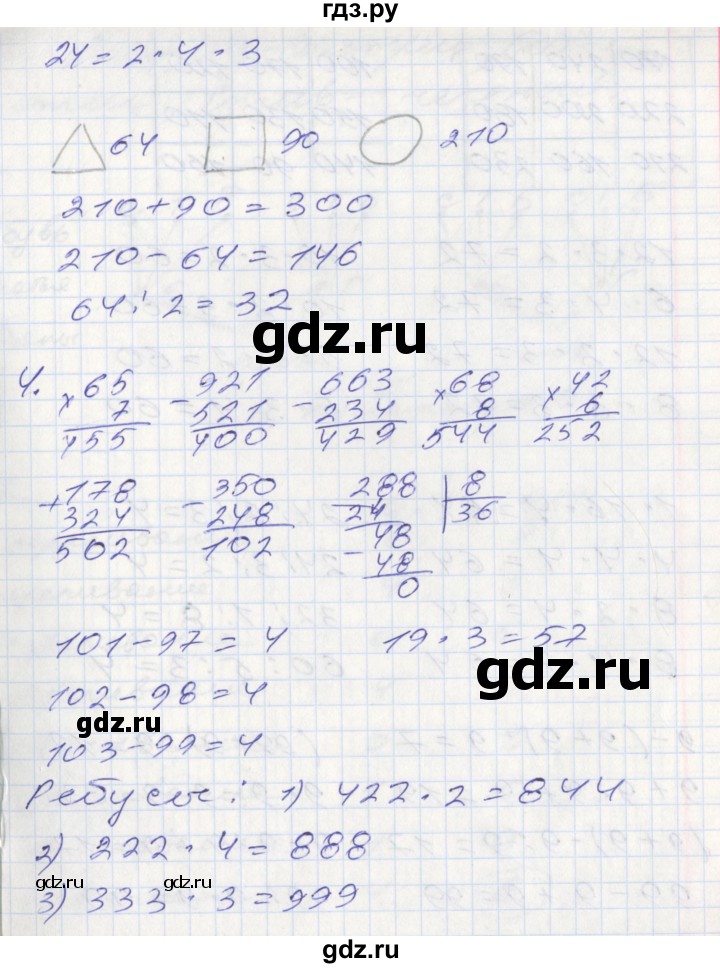 гдз.ру
24 = 2 · 4 · 3
64 90 210
210 + 90 = 300
210 - 64 = 146
64 : 2 = 32
gdz.ru
4. × 65 - 921 - 663 × 68 × 42
7 521 234 8 6
455 400 429 544 252
+ 178 - 350 - 288 8
324 248 24 36
502 102 48
- 48
0
101 - 97 = 4 19 · 3 = 57
gdz.ru
102 - 98 = 4
gdz.ru
103 - 99 = 4
Ребусы: 1) 422 · 2 = 844
2) 222 · 4 = 888
gdz.ru gdz.ru
3) 333 · 3 = 999
gdz.ru